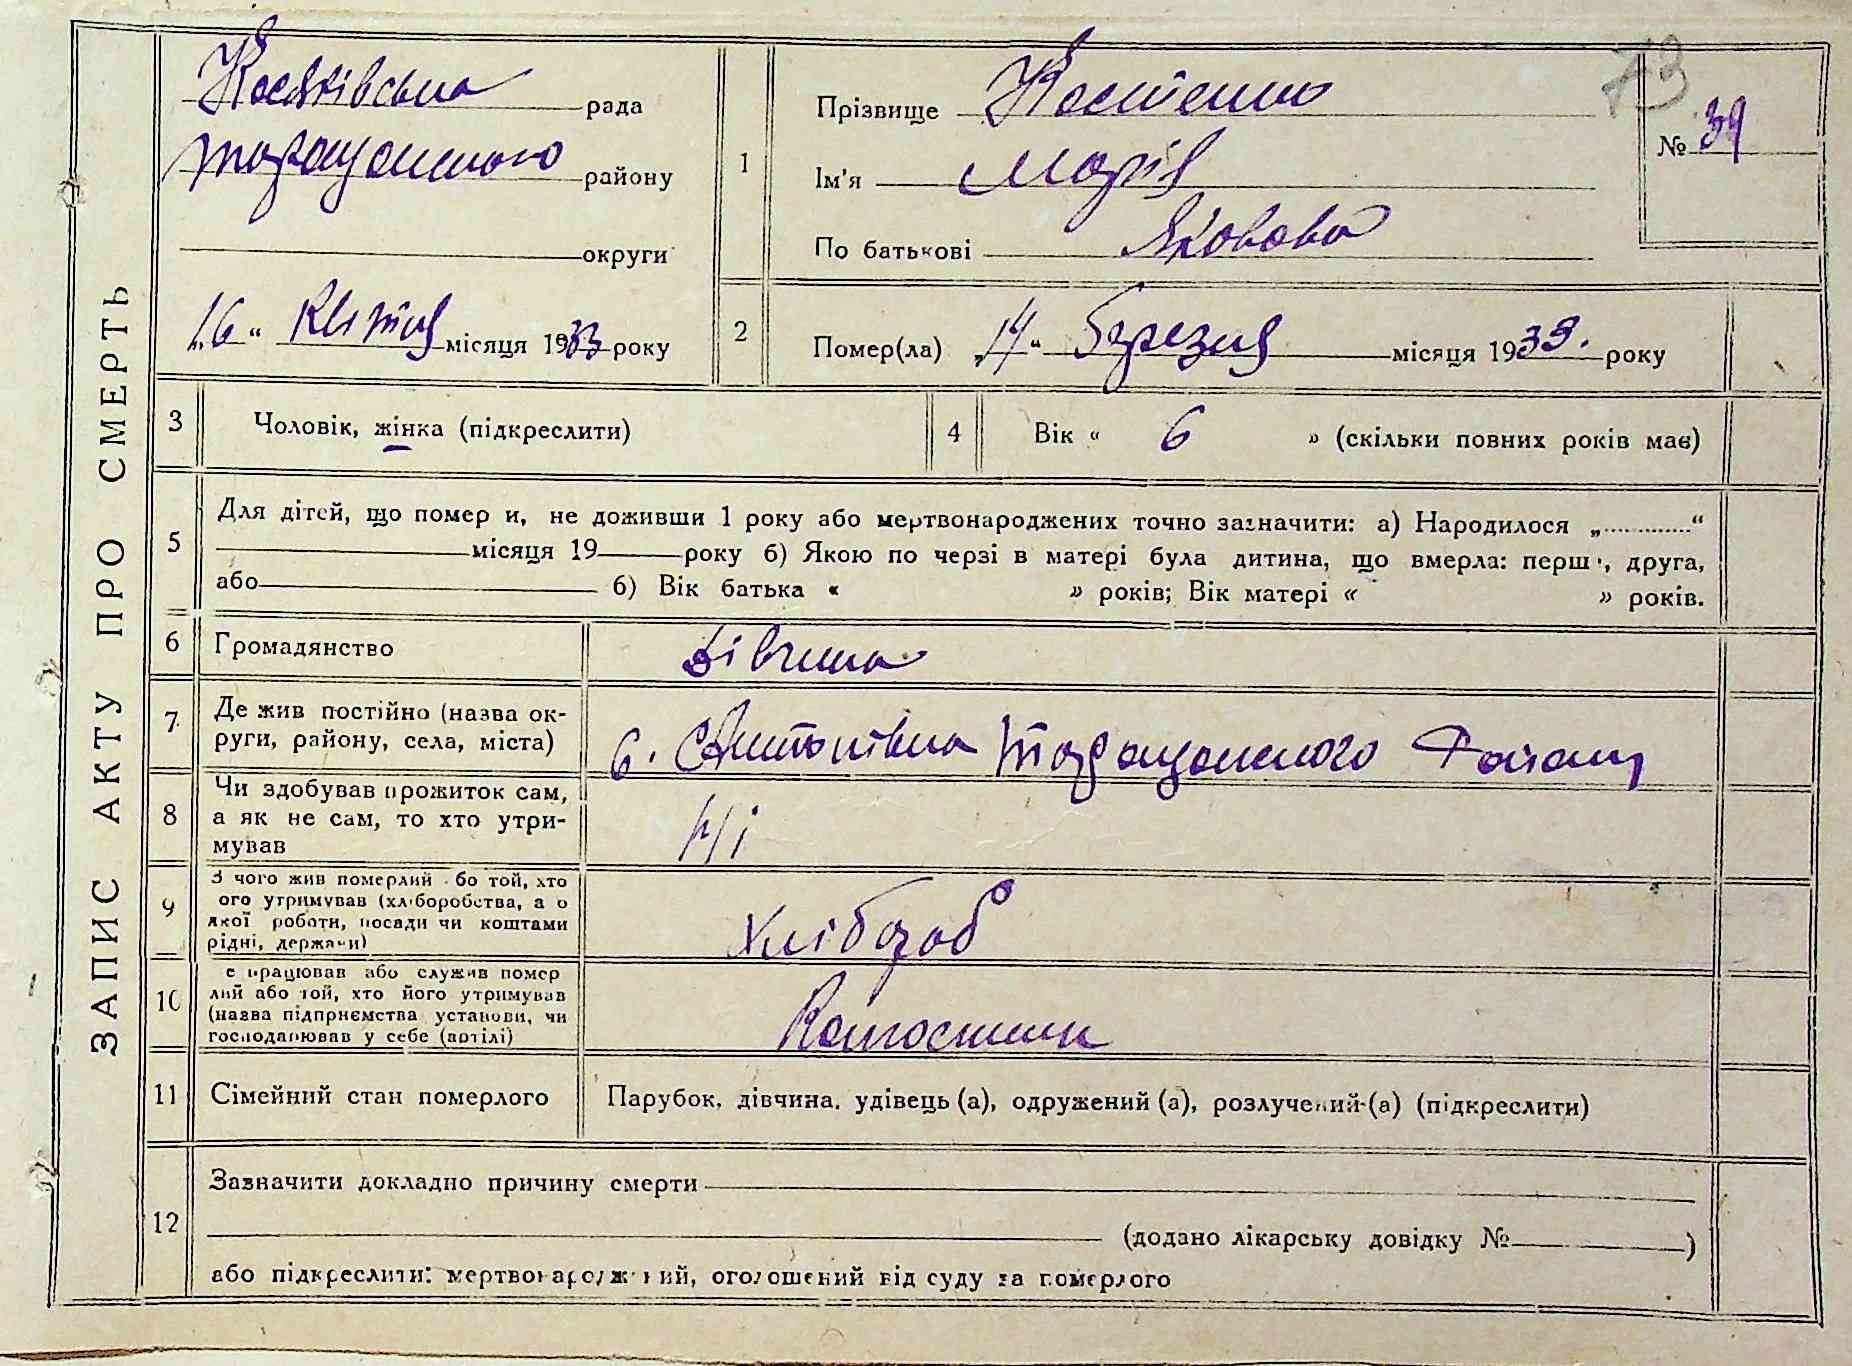 ЗАПИС АКТУ ПРО СМЕРТЬ
Косяківська рада
Таращанського району
округи
„16“ квітня місяця 1933 року
1
Прізвище Костенко
Ім'я Марія
По батькові Яковова
73
№ 39
2
Помер(ла) „14“ березня місяця 1933. року
3
Чоловік, жінка (підкреслити)
4
Вік « 6 » (скільки повних років має)
5
Для дітей, що померли, не доживши 1 року або мертвонароджених точно зазначити: а) Народилося „............“
місяця 19 року б) Якою по черзі в матері була дитина, що вмерла: перша, друга,
або б) Вік батька « » років; Вік матері « » років.
6
Громадянство
дівчина
7
Де жив постійно (назва ок-
руги, району, села, міста)
Таращанського Району
8
Чи здобував прожиток сам,
а як не сам, то хто утри-
мував
Ні
9
З чого жив померлий або той, хто
його утримував (хліборобства, а о
якої роботи, посади чи коштами
рідні, держави)
Хлібороб
10
е працював або служив помер
лий або той, хто його утримував
(назва підприємства установи, чи
господарював у себе (артілі)
Колгоспник
11
Сімейний стан померлого
Парубок, дівчина, удівець (а), одружений (а), розлучений-(а) (підкреслити)
12
Зазначити докладно причину смерти
(додано лікарську довідку № )
або підкреслити: мертвонароджений, оголошений від суду за померлого